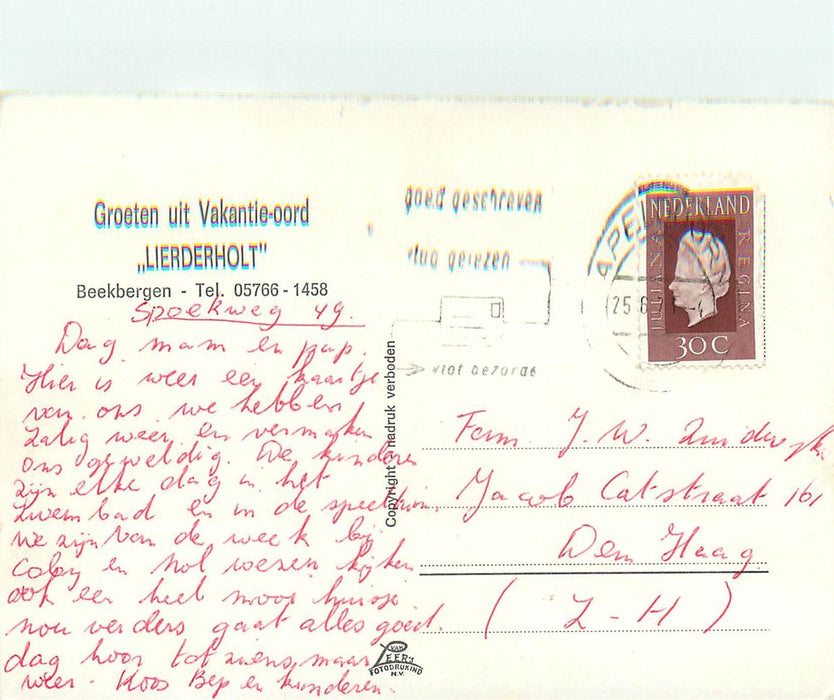 Groeten uit Vakantie-oord
„LIERDERHOLT"
Beekbergen - Tel. 05766 - 1458
Spoekweg 49.
Dag mam en pap.
Hier is weer een kaartje
van ons we hebben
zalig weer en vermaken
ons geweldig. De kinderen
zijn elke dag in het
zwembad en in de speeltuin.
we zijn van de week bij
en Nol wezen kijken
ook een heel mooi huisje.
nou verders gaat alles goed.
dag hoor tot ziens, maar
weer. Koos Bep en kinderen.
Copyright nadruk verboden
VAN LEER'S
FOTODRUKIND
N.V.
goed geschreven
vlug gelezen
vlot bezorgd
25 6
NEDERLAND
JULIANA REGINA
30 C
Fam. J. W.
Jacob Catstraat 161
Den Haag
( Z - H )